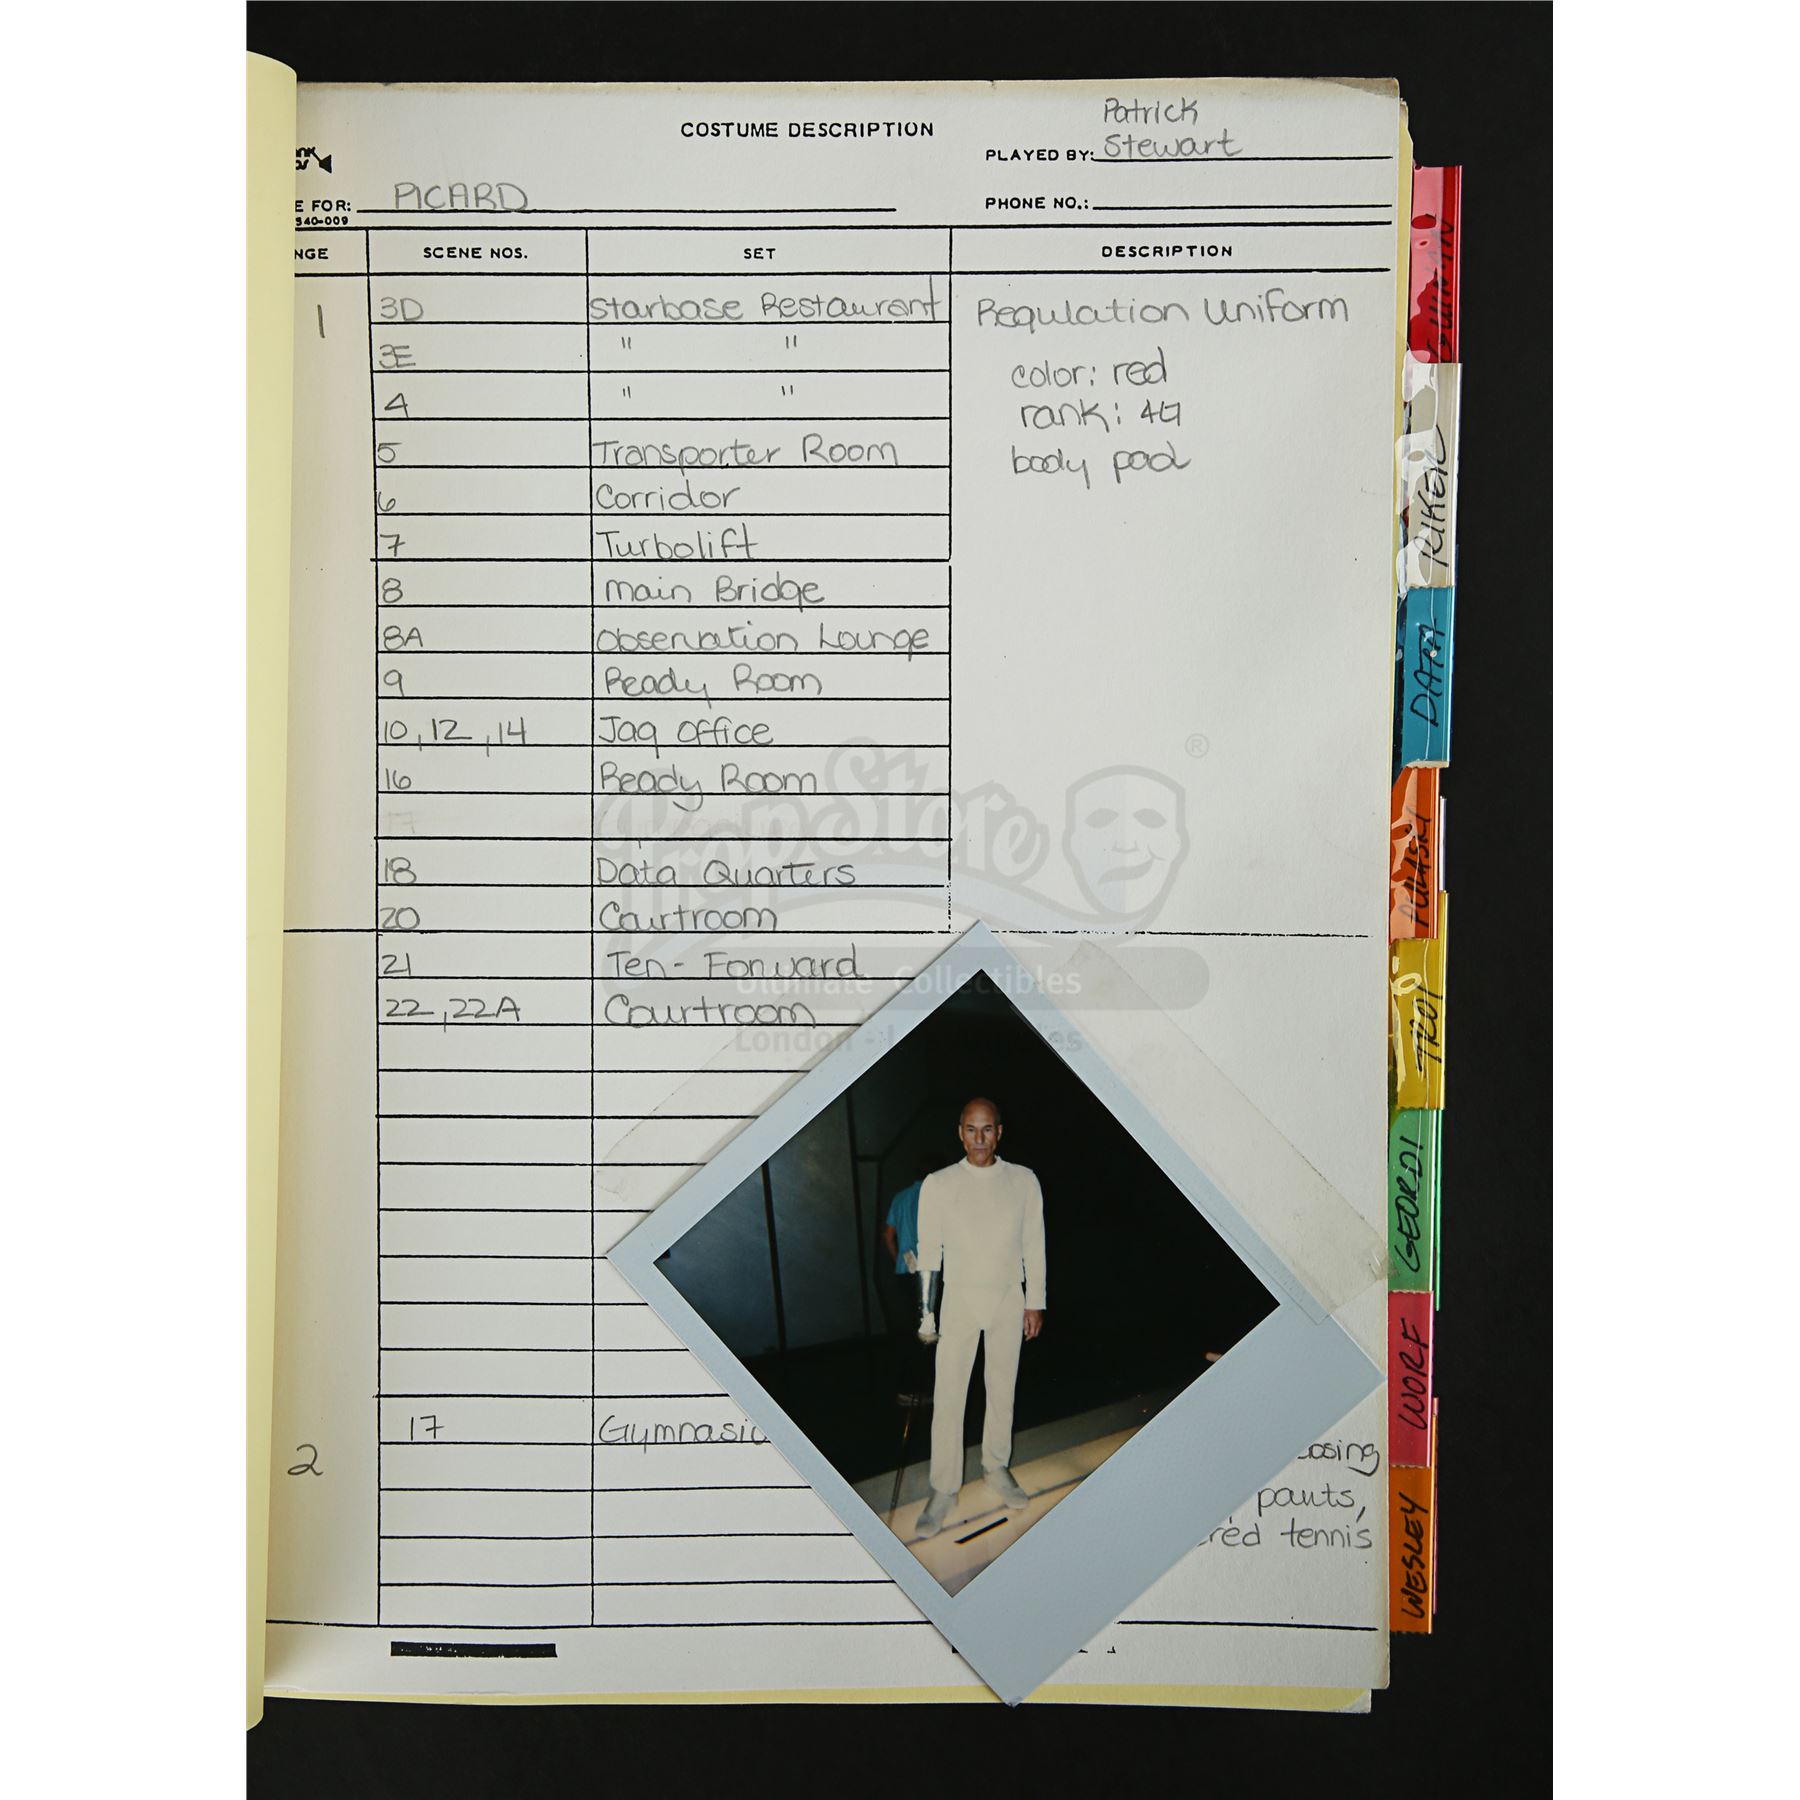 COSTUME DESCRIPTION
Patrick
PLAYED BY: Stewart
E FOR: PICARD
PHONE NO.:
340-009
NGE SCENE NOS. SET DESCRIPTION
1 3D Starbase Restaurant Regulation Uniform
3E " "
color: red
4 " "
rank: 4G
5 Transporter Room
body pad
6 Corridor
7 Turbolift
8 Main Bridge
8A Observation Lounge
9 Ready Room
10, 12, 14 Jag Office
16 Ready Room
17
18 Data Quarters
20 Courtroom
21 Ten-Forward
22, 22A Courtroom
17 Gymnasiu
2
pants,
red tennis
GUINAN
RIKER
DATA
PULASKI
TROI
GEORDI
WORF
WESLEY
Prop Store ®
Ultimate Collectibles
London - Los Angeles